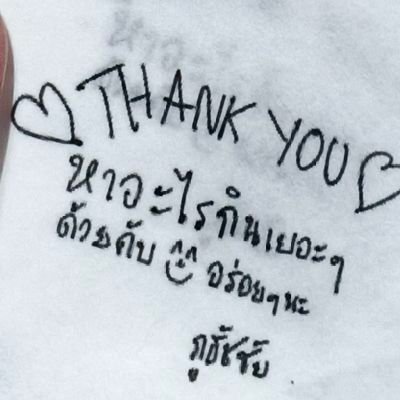 THANK YOU
หาอะไรกินเยอะๆ
ด้วยคับ อร่อยๆนะ
ภูธัชชัย